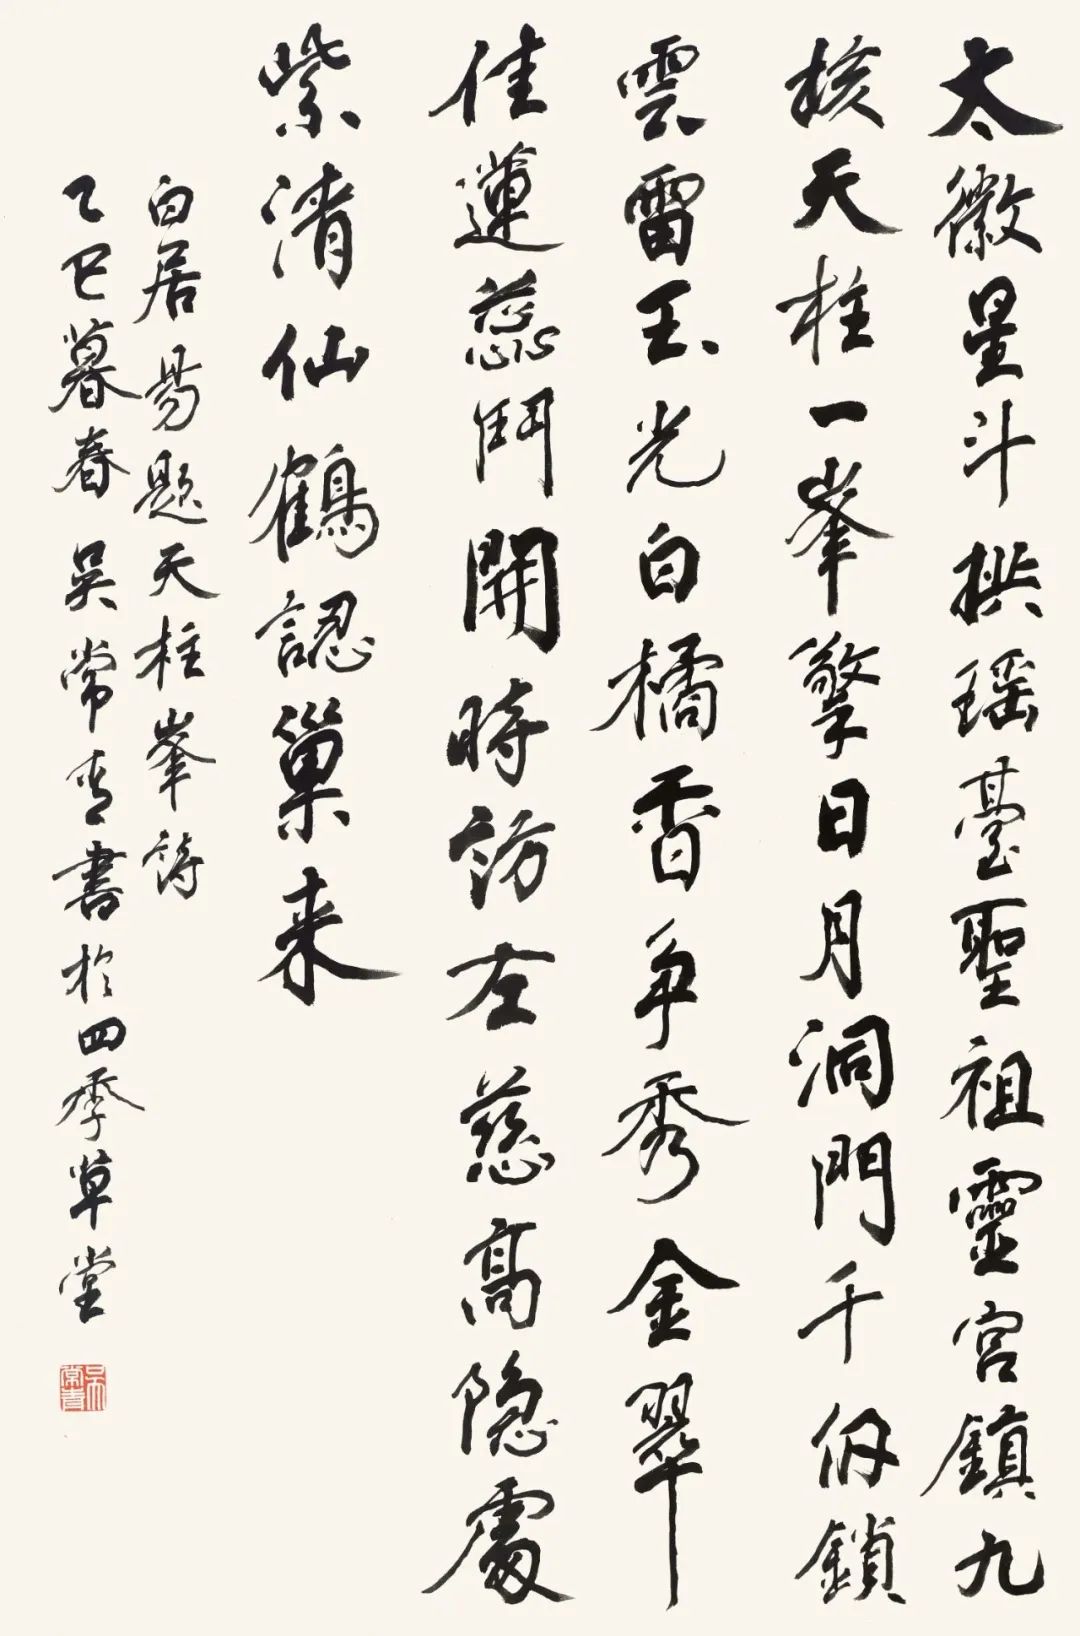 太徽星斗拱瑶臺聖祖靈宮鎮九
核天柱一峯擎日月洞門千仞鎖
雲雷玉光白橘香争秀金翠
佳蓮蕊鬥開時訪左慈高隐處
紫清仙鶴認巢来
白居易題天柱峯詩
乙巳暮春吴常青書於四季草堂
吴常青